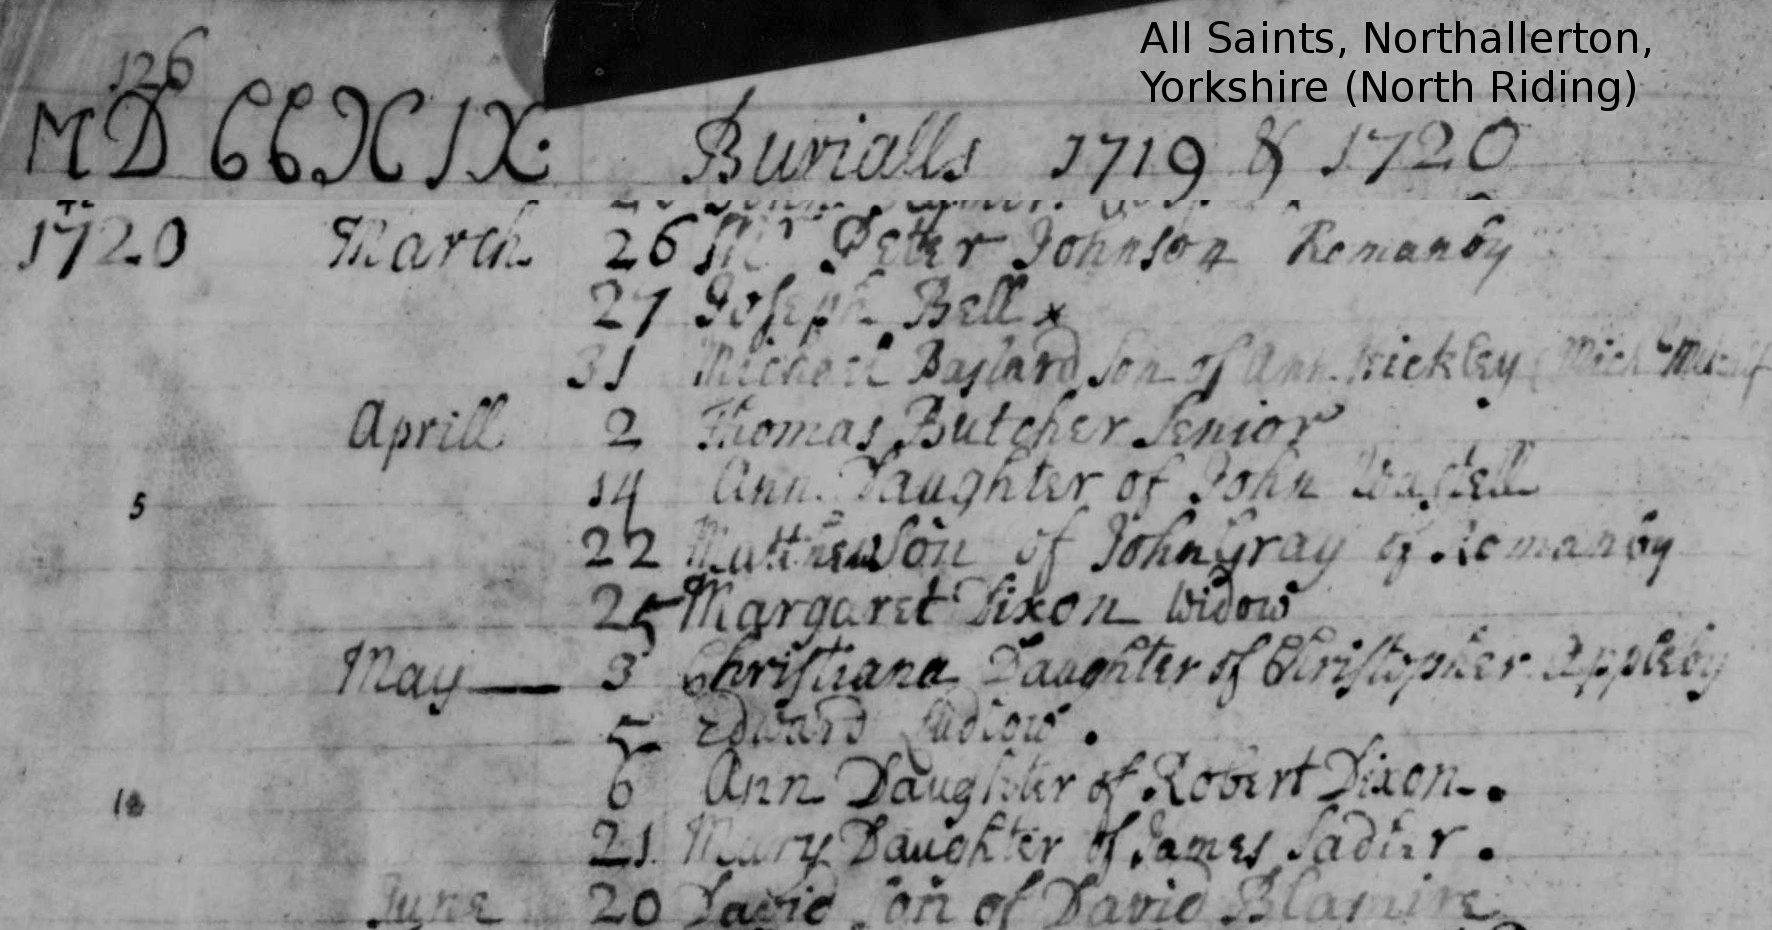 All Saints, Northallerton,
Yorkshire (North Riding)
126
MDCCXIX. Burialls 1719 & 1720
1720 March 26 Mr Peter Johnson Romanby
27 Joseph Bell x
31 Michael Bastard Son of Ann Mich
Aprill 2 Thomas Butcher Senior
5 14 Ann Daughter of John Wastell
22 Matthew Son of John Gray of Romanby
25 Margaret Dixon Widow
May 3 Christiana Daughter of Christopher Appleby
5 Edward Ludlow.
10 6 Ann Daughter of Robert Dixon.
21 Mary Daughter of James Sadler.
June 20 David Son of David Blamire